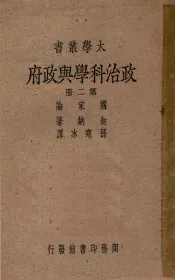 書叢學大
府政與學科治政
冊二第
論家國
著納迦
譯冰寒孫
行發館書印務商